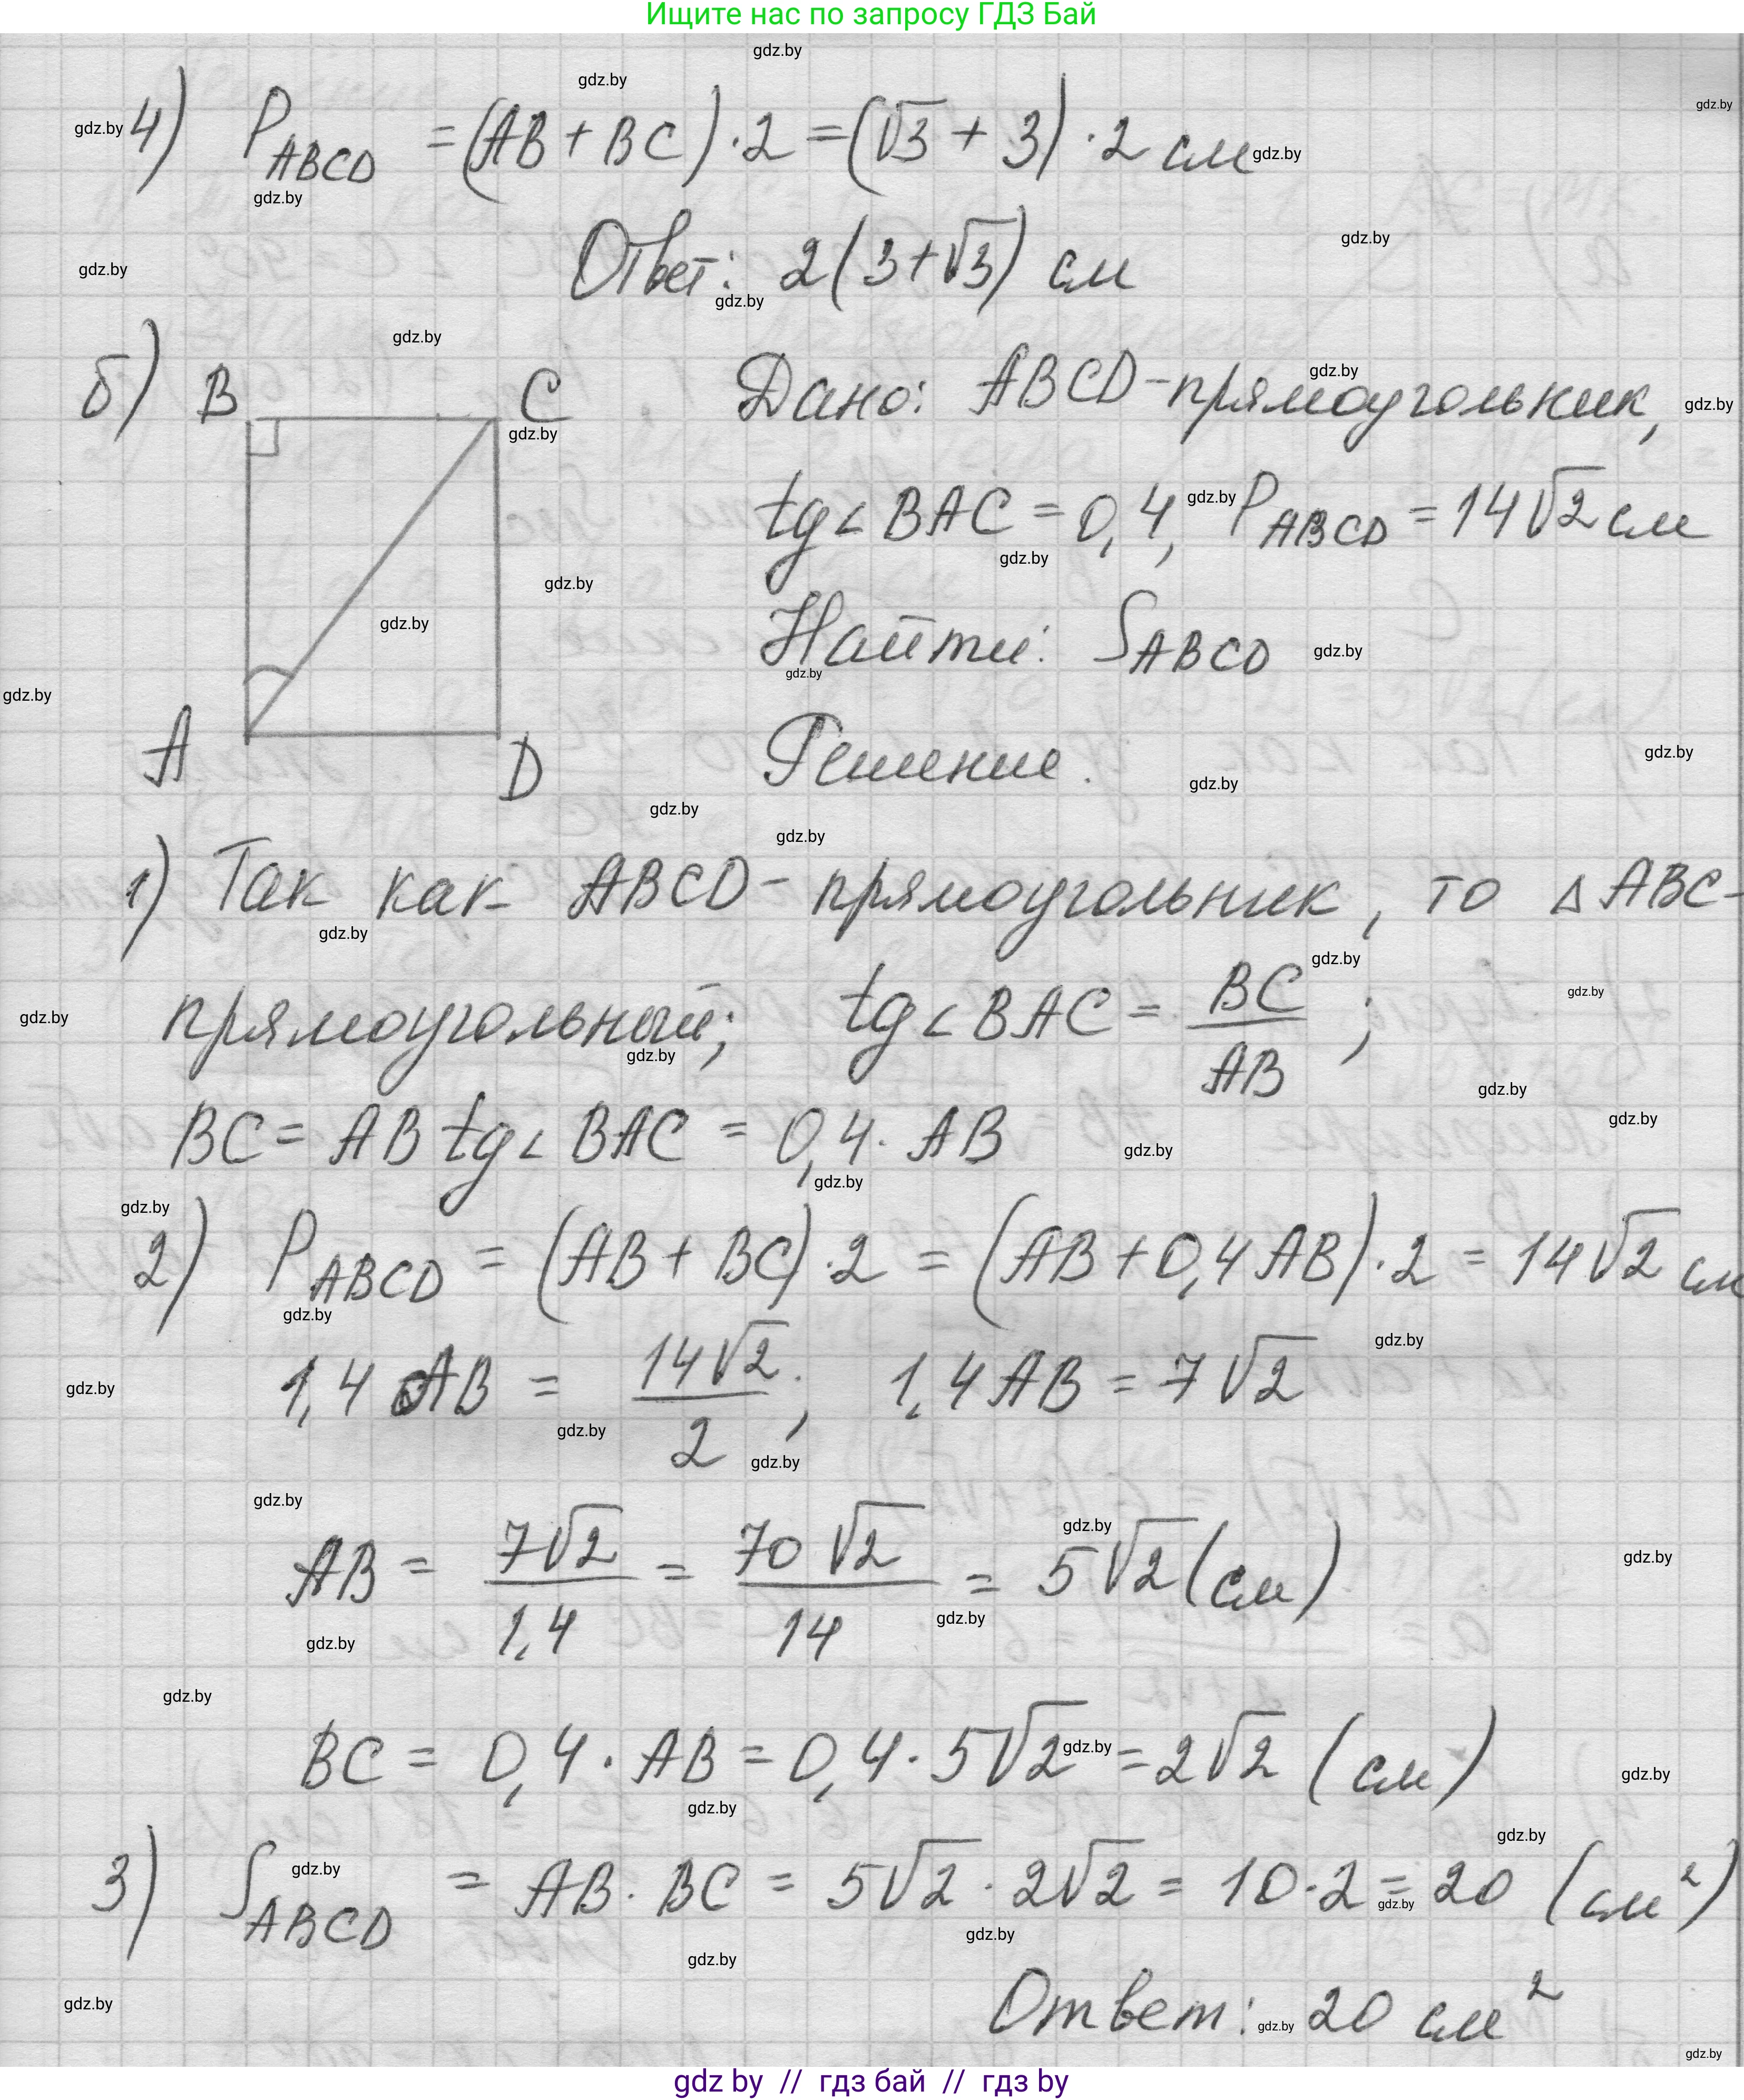 Ищите нас по запросу ГДЗ Бай
4) P_ABCD = (AB + BC) · 2 = (√3 + 3) · 2 см
Ответ: 2(3+√3) см
б) B C Дано: ABCD - прямоугольник,
tg∠BAC = 0,4, P_ABCD = 14√2 см
Найти: S_ABCD
A D Решение.
1) Так как ABCD - прямоугольник, то △ABC -
прямоугольный; tg∠BAC = BC/AB;
BC = AB tg∠BAC = 0,4 · AB
2) P_ABCD = (AB + BC) · 2 = (AB + 0,4 AB) · 2 = 14√2 см
1,4 AB = 14√2/2; 1,4 AB = 7√2
AB = 7√2/1,4 = 70√2/14 = 5√2 (см)
BC = 0,4 · AB = 0,4 · 5√2 = 2√2 (см)
3) S_ABCD = AB · BC = 5√2 · 2√2 = 10 · 2 = 20 (см²)
Ответ: 20 см²
gdz by // гдз бай // гдз by